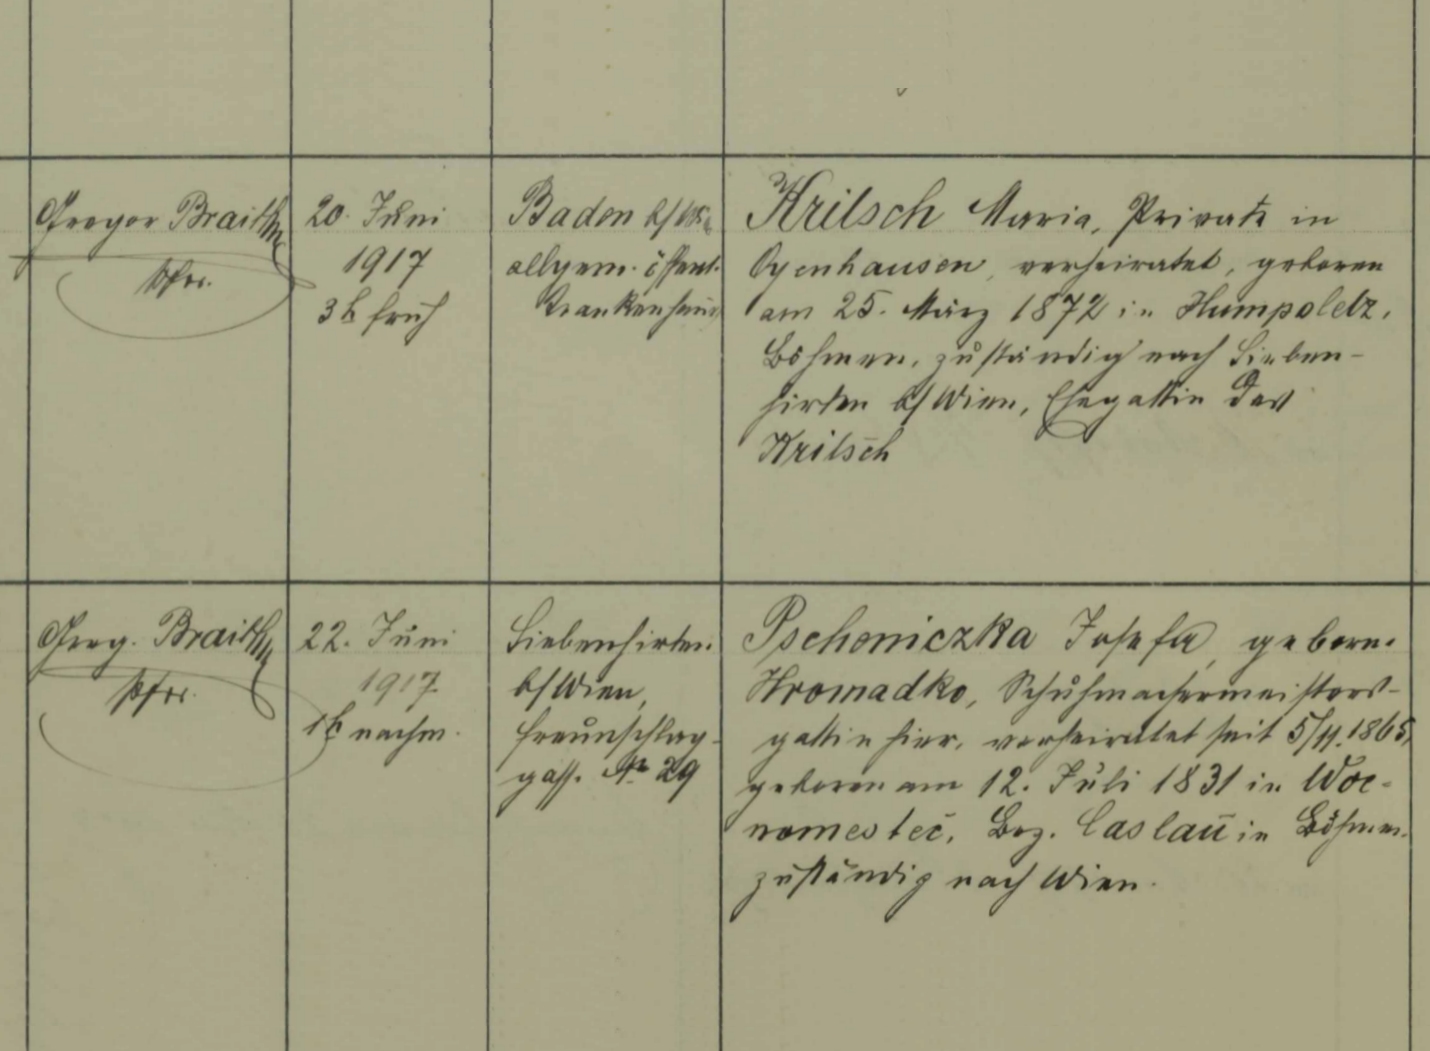 Gregor Braith
Pfrr.
20. Juni
1917
3 h früh
Baden b/Wien
allgem. öffentl.
Krankenhaus
Kritsch Maria, Private in
Oyenhausen, verheiratet, geboren
am 25. März 1872 in Humpoletz,
Böhmen, zuständig nach Sieben-
hirten b/Wien, Ehegattin des
Kritsch
Greg. Braith
Pfrr.
22. Juni
1917
1 h nachm.
Siebenhirten
b/Wien,
Freunschlag-
gasse № 29
Pschoniczka Josefa, geborn.
Hromadko, Schuhmachermeisters-
gattin hier, verheiratet seit 5/11. 1865,
geboren am 12. Juli 1831 in Woc-
nomesteč, Bez. Caslau in Böhmen
zuständig nach Wien.